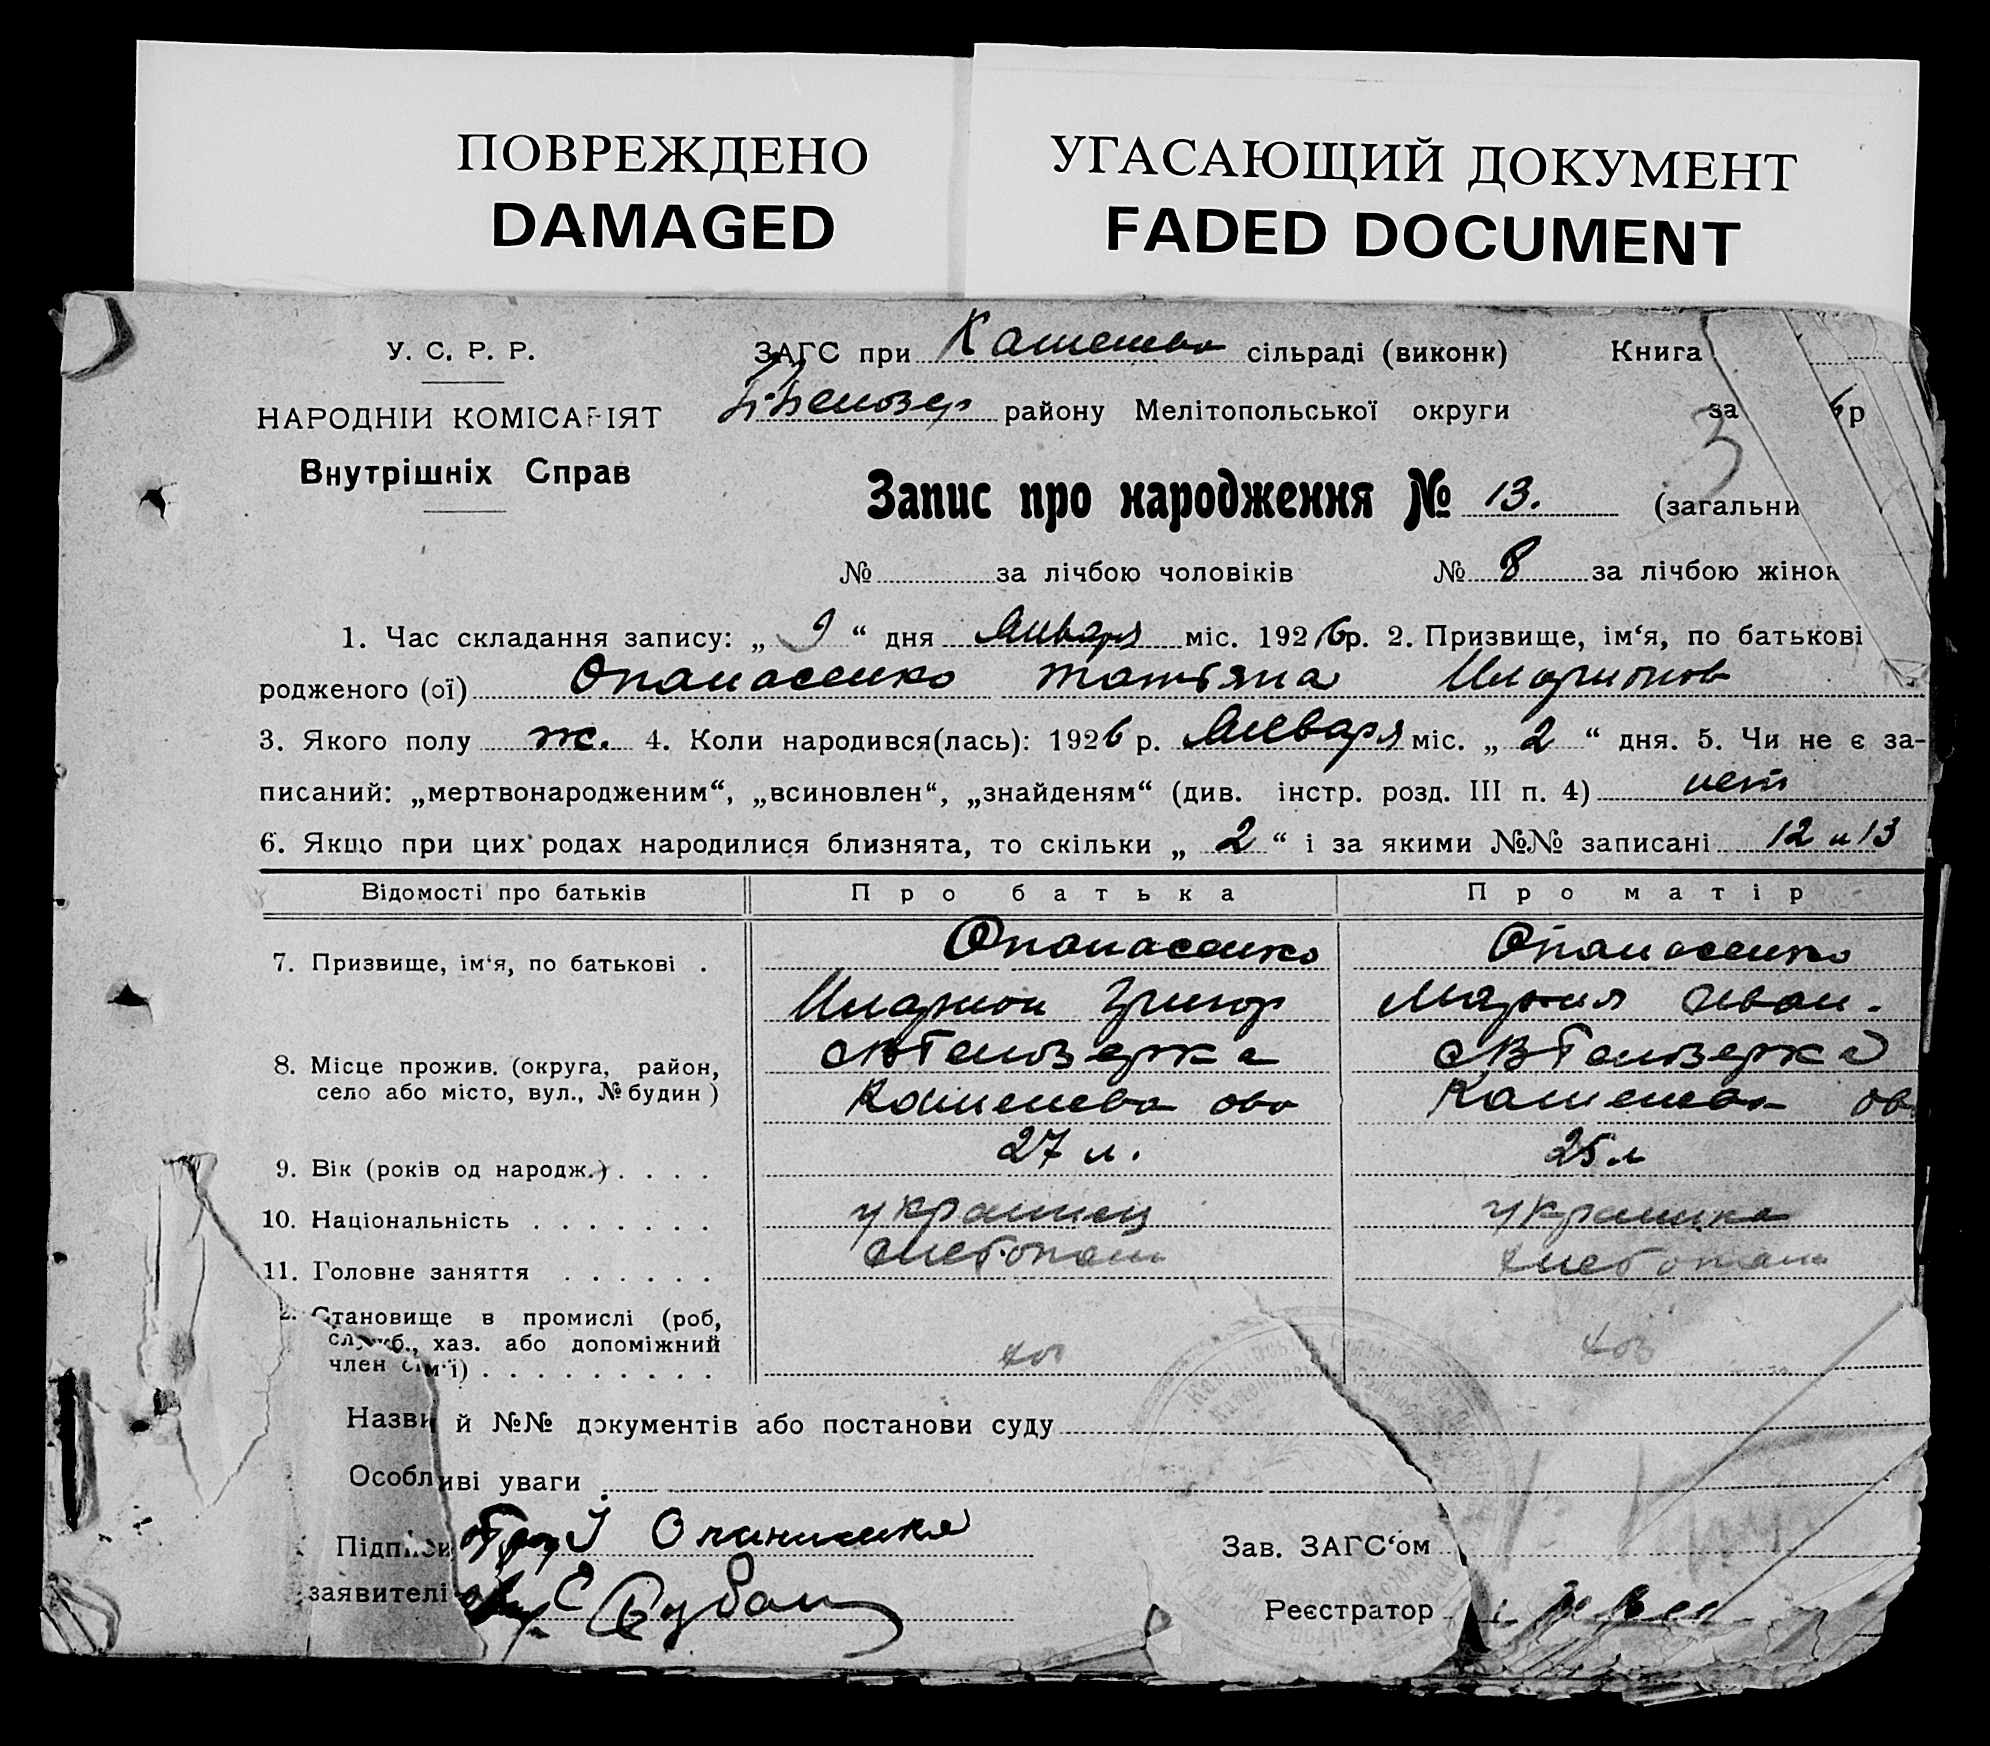 ПОВРЕЖДЕНО
DAMAGED
УГАСАЮЩИЙ ДОКУМЕНТ
FADED DOCUMENT
У. С. Р. Р.
НАРОДНІЙ КОМІСАРІЯТ
Внутрішніх Справ
ЗАГС при сільраді (виконк) Книга
району Мелітопольської округи за 6р
Запис про народження № 13. (загальни
3
№ за лічбою чоловіків № 8 за лічбою жінок
1. Час складання запису: „ 9 “ дня Января міс. 1926р. 2. Призвище, ім‘я, по батькові
родженого (ої) Опанасенко Татьяна Иларионов
3. Якого полу ж. 4. Коли народився(лась): 1926 р. Января міс. „ 2 “ дня. 5. Чи не є за-
писаний: „мертвонародженим“, „всиновлен“, „знайденям“ (див. інстр. розд. III п. 4) нет
6. Якщо при цих родах народилися близнята, то скільки „ 2 “ і за якими №№ записані 12 и 13
Відомості про батьків Про батька Про матір
7. Призвище, ім‘я, по батькові . Опанасенко Опанасенко
Иларион Григор Мария Иван.
8. Місце прожив. (округа, район, село або місто, вул., № будин) Белозерка Белозерка
9. Вік (років од народж.) . . . . 27 л. 25 л
10. Національність . . . . . . . украинец украинка
11. Головне заняття . . . . . . хлебопаш хлебопаш
2. Становище в промислі (роб,
служб., хаз. або допоміжний
член сім‘ї) . . . . . . . . . хоз хоз
Назви й №№ документів або постанови суду
Особливі уваги
Підписи
заявителі
Зав. ЗАГС‘ом
Реєстратор